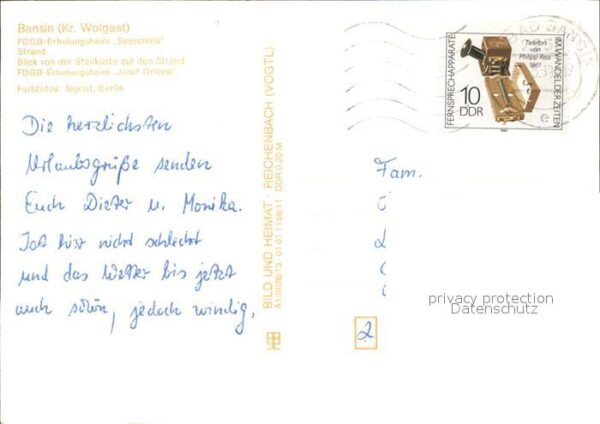 Bansin (Kr. Wolgast)
FDGB-Erholungsheim „Seeschloß"
Strand
Blick von der Steilküste auf den Strand
FDGB-Erholungsheim „Josef Orlopp"
Farbfotos: Sigrist, Berlin
Die herzlichsten
Urlaubsgrüße senden
Euch Dieter u. Monika.
Ist hier nicht schlecht
und das Wetter bis jetzt
auch schön, jedoch windig.
BILD UND HEIMAT · REICHENBACH (VOGTL)
FERNSPRECHAPPARATE
IM WANDEL DER ZEITEN
Telefon
von
Philipp Reis
1861
10
DDR
BANSIN
e
Fam.
2
privacy protection
Datenschutz